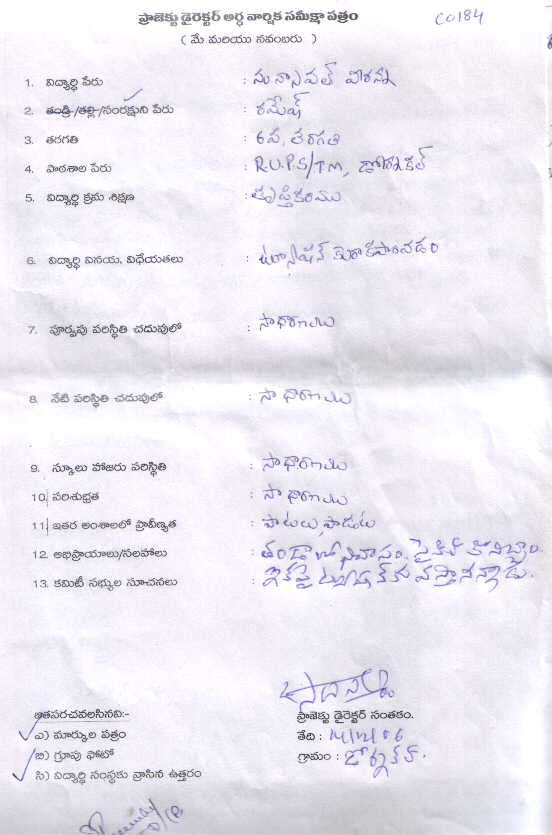 ప్రాజెక్టు డైరెక్టర్ అర్ధ వార్షిక సమీక్షా పత్రం
CO184
( మే మరియు నవంబరు )
1. విద్యార్థి పేరు : మున్నాపల్ వీరన్న
2. తండ్రి/తల్లి/సంరక్షకుని పేరు : రమేష్
3. తరగతి : 6వ, తరగతి
4. పాఠశాల పేరు : R.U.P.S/TM, డోర్నకల్
5. విద్యార్థి క్రమ శిక్షణ : తృప్తికరము
6. విద్యార్థి వినయ, విధేయతలు : ట్యూషన్ కు రాకపోవడం
7. పూర్వపు పరిస్థితి చదువులో : సాధారణము
8. నేటి పరిస్థితి చదువులో : సాధారణము
9. స్కూలు హాజరు పరిస్థితి : సాధారణము
10. పరిశుభ్రత : సాధారణము
11. ఇతర అంశాలలో ప్రావీణ్యత : పాటలు, పాడుట
12. అభిప్రాయాలు/సలహాలు : తండాలో నివాసం. సైకిల్ కొనిచ్చాం.
13. కమిటీ సభ్యుల సూచనలు : ఇకపై ట్యూషన్ కు వస్తానన్నాడు.
జతపరచవలసినవి:-
ఎ) మార్కుల పత్రం
బి) గ్రూపు ఫోటో
సి) విద్యార్థి సంస్థకు వ్రాసిన ఉత్తరం
ప్రాజెక్టు డైరెక్టర్ సంతకం.
తేది : 14/12/06
గ్రామం : డోర్నకల్.